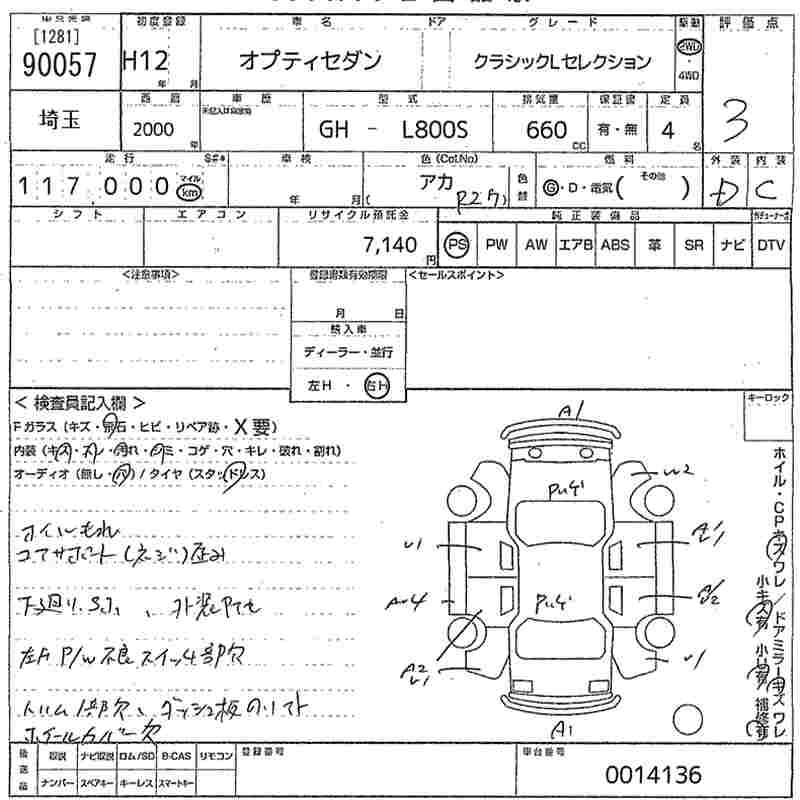 [1281]
90057
初度登録
H12
年 月
車名
ドア
グレード
オプティセダン
クラシックLセレクション
駆動
2WD
・
4WD
評価点
3
埼玉
西暦
2000
年
車歴
型式
GH - L800S
排気量
660
CC
保証書
有・無
定員
4
名
走行
117000
マイル
km
車検
年 月
色(Col.No)
アカ
R27
色替
燃料
G・D・電気( その他 )
外装
D
内装
C
シフト
エアコン
リサイクル預託金
7,140
円
純正装備品
PS PW AW エアB ABS 革 SR ナビ DTV
<注意事項>
登録書類有効期限
月 日
輸入車
ディーラー・並行
左H・右H
<セールスポイント>
キーロック
< 検査員記入欄 >
Fガラス (キズ・飛石・ヒビ・リペア跡・X要)
内装 (キズ・スレ・汚れ・シミ・コゲ・穴・キレ・破れ・割れ)
オーディオ (無し・穴) / タイヤ (スタッドレス)
オイルもれ
コアサポート(ネジ)歪み
下廻り.S.
左F P/W 不良 スイッチ部欠
トリム1部欠、ダッシュ板のリフト
ホイールカバー欠
A1
U2
U1
A2
U1
U1
A1
ホイル・CPキズワレ/ドアミラーキズワレ
小キズ有 小凹有 補修有
後送品
取説 ナビ取説 ロム/SD B-CAS リモコン
ナンバー スペアキー キーレス スマートキー
登録番号
車台番号
0014136